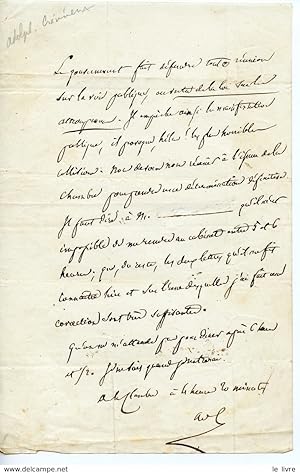 Adolph. Crémieux
Le gouvernement fait défendre toute réunion
sur la voie publique, en vertu de la loi sur les
attroupemens. Il empêche ainsi la manifestation
publique, il provoque hélas! la plus horrible
collision. Nous devons nous réunir à l'issue de la
chambre pour prendre une détermination définitive.
Il faut dire à M. qu'il a été
impossible de me rendre au cabinet entre 5 et 6
heures; que, du reste, les deux lettres qu'il m'a fait
connaître hier et sur l'une desquelles j'ai fait une
correction sont très suffisantes.
Qu'on ne m'attende pas pour dîner après 6 heures
et 1/2.
à la Chambre à 4 heures 20 minutes
AdC
le livre